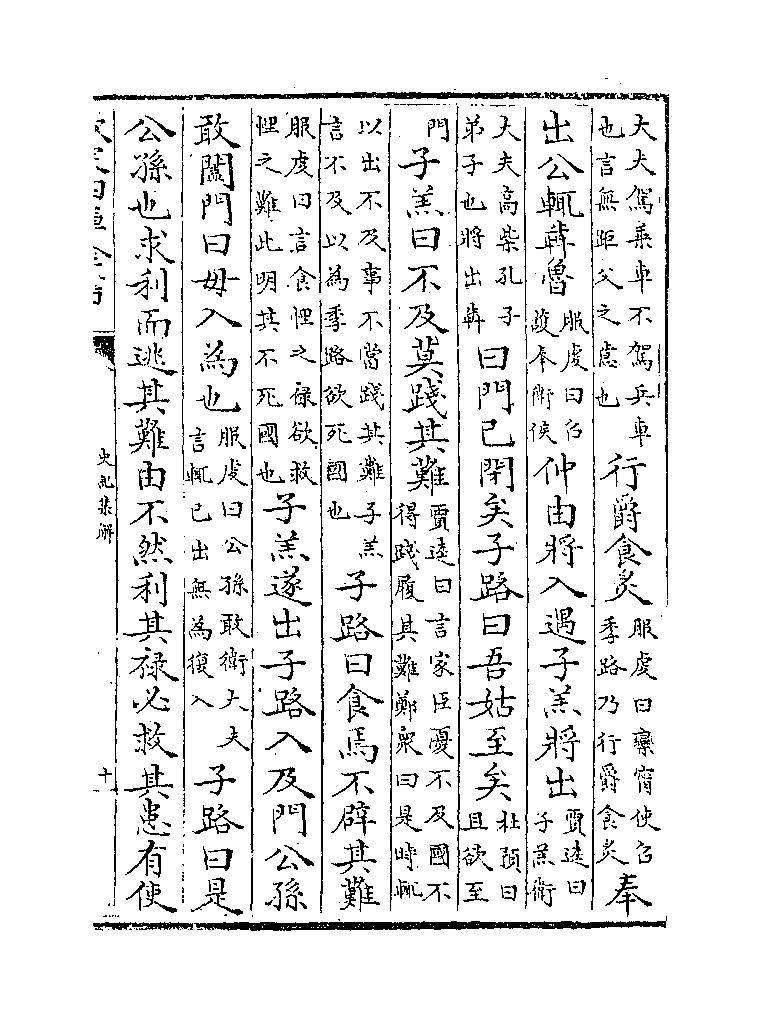 大夫駕乗車不駕兵車也言無距父之意也行爵食炙服虔曰欒甯使召季路乃行爵食炙奉
出公輒犇魯服虔曰召䕶奉衛侯仲由將入遇子羔將出賈逵曰子羔衛
大夫高柴孔子弟子也將出犇曰門已閉矣子路曰吾姑至矣杜預曰且欲至
門子羔曰不及莫踐其難賈逵曰言家臣憂不及國不得踐履其難鄭衆曰是時輒
以出不及事不當踐其難子羔言不及以為季路欲死國也子路曰食焉不辟其難
服虔曰言食悝之禄欲救悝之難此明其不死國也子羔遂出子路入及門公孫
敢闔門曰毋入為也服虔曰公孫敢衛大夫言輒已出無為復入子路曰是
公孫也求利而逃其難由不然利其禄必救其患有使
欽定四庫全書
史記集解
十